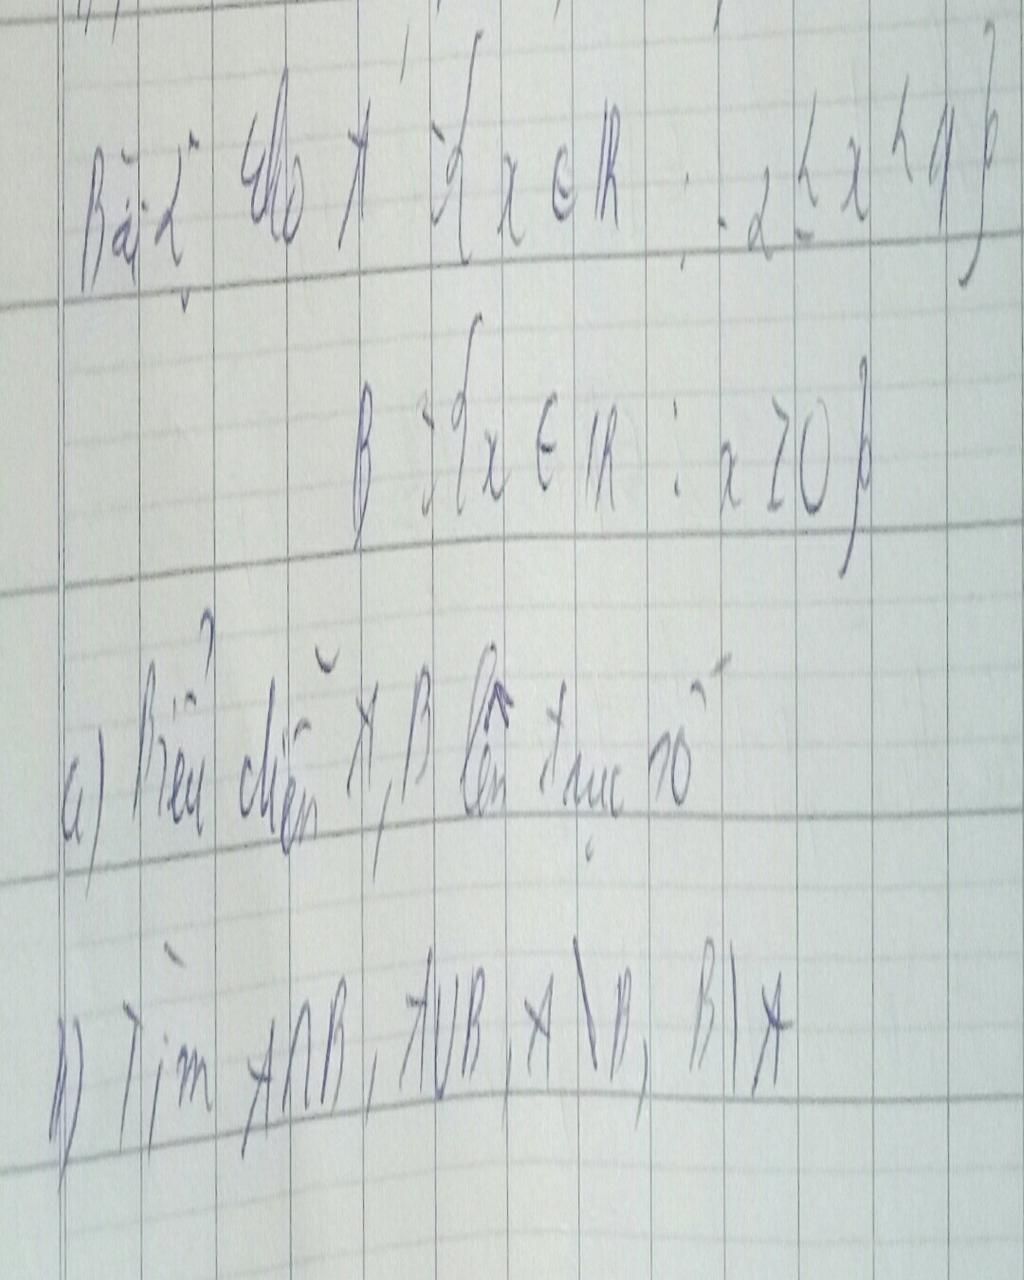 Bài 2 Cho A = {x ∈ R : -2 ≤ x < 4}
B = {x ∈ R : x ≥ 0}
a) Biểu diễn A, B lên trục số
b) Tìm A∩B, A∪B, A\B, B\A